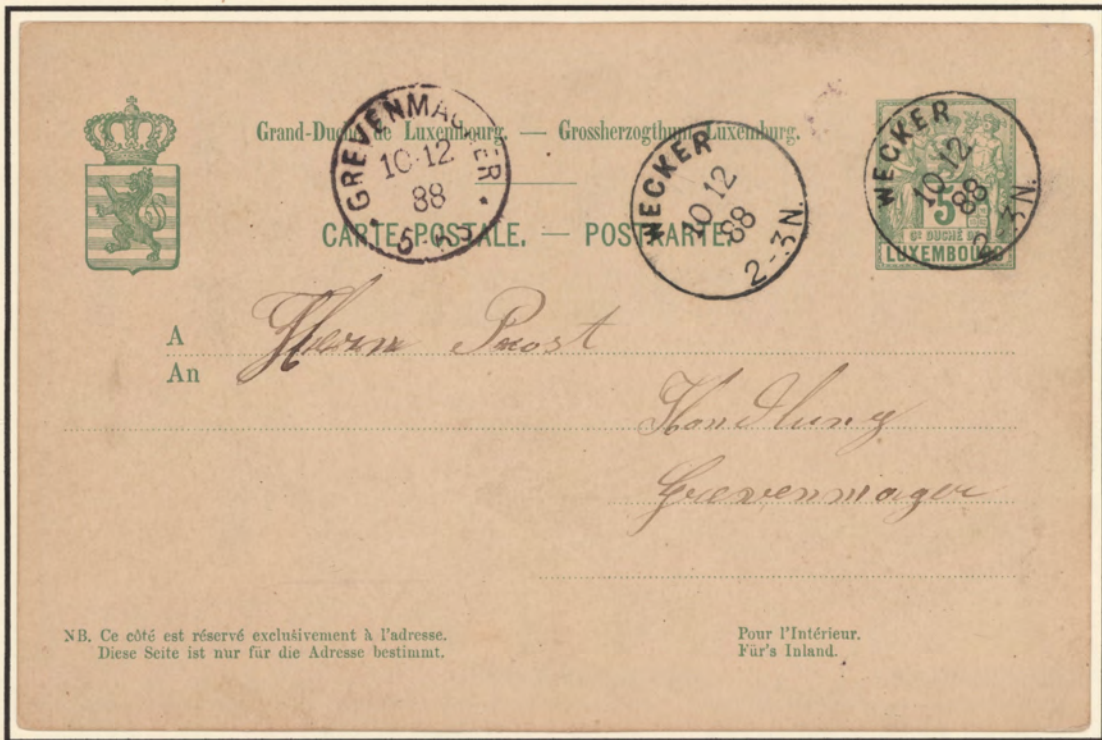 Grand-Duché de Luxembourg. — Grossherzogthum Luxemburg.
GREVENMACHER
10·12
88
WECKER
10 12
88
2-3N.
WECKER
10·12
88
2-3N.
5
Gᴰ DUCHÉ DE
LUXEMBOURG
CARTE POSTALE. — POSTKARTE.
A
An
Herrn Prost
Handlung
Grevenmager
NB. Ce côté est réservé exclusivement à l'adresse.
Diese Seite ist nur für die Adresse bestimmt.
Pour l'Intérieur.
Für's Inland.